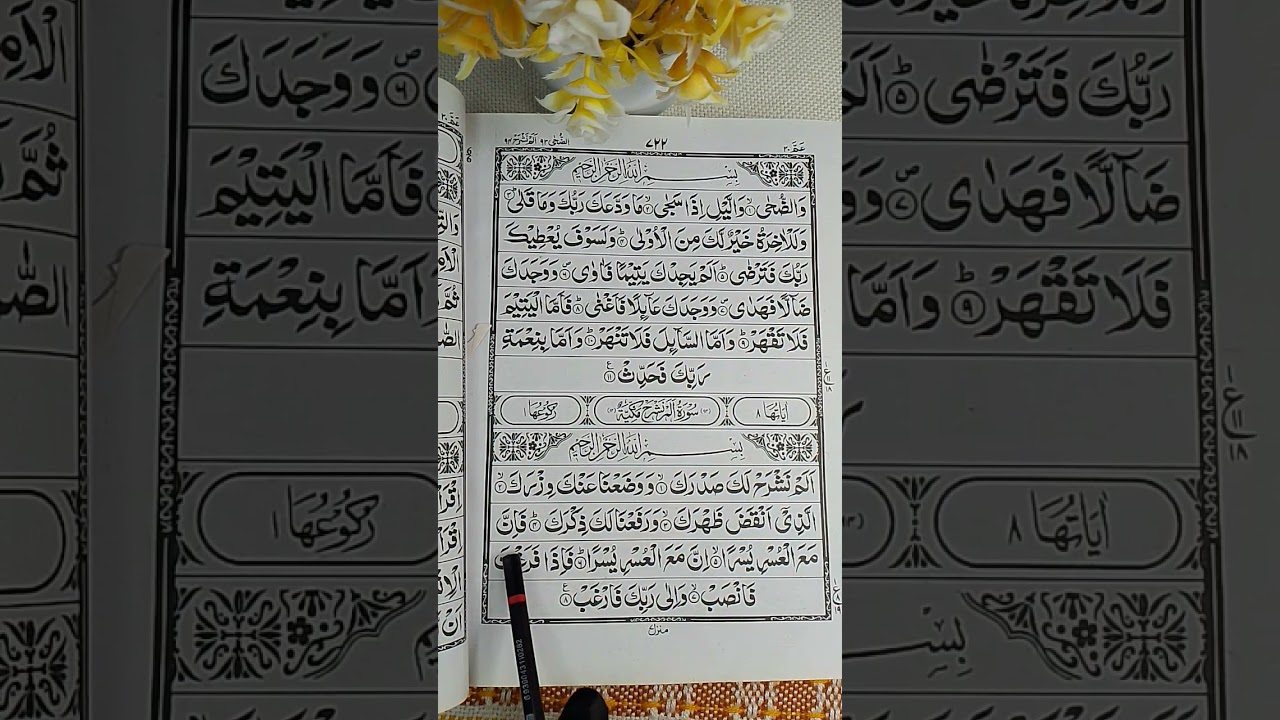 عمّ ٣٠
٧٢٢
الضّحٰى ٩٣ الم نشرح ٩٤
بِسْمِ اللّٰهِ الرَّحْمٰنِ الرَّحِيْمِ
وَالضُّحٰى ۙ﴿۱﴾ وَالَّيْلِ اِذَا سَجٰى ۙ﴿۲﴾ مَا وَدَّعَكَ رَبُّكَ وَمَا قَلٰى ؕ﴿۳﴾
وَلَلْاٰخِرَةُ خَيْرٌ لَّكَ مِنَ الْاُوْلٰى ؕ﴿۴﴾ وَلَسَوْفَ يُعْطِيْكَ
رَبُّكَ فَتَرْضٰى ؕ﴿۵﴾ اَلَمْ يَجِدْكَ يَتِيْمًا فَاٰوٰى ۪﴿۶﴾ وَوَجَدَكَ
ضَآلًّا فَهَدٰى ۪﴿۷﴾ وَوَجَدَكَ عَآئِلًا فَاَغْنٰى ؕ﴿۸﴾ فَاَمَّا الْيَتِيْمَ
فَلَا تَقْهَرْ ؕ﴿۹﴾ وَاَمَّا السَّآئِلَ فَلَا تَنْهَرْ ؕ﴿۱۰﴾ وَاَمَّا بِنِعْمَةِ
رَبِّكَ فَحَدِّثْ ﴿۱۱﴾
اٰيَاتُهَا ٨ سُوْرَةُ اَلَمْ نَشْرَحْ مَكِّيَّةٌ رُكُوْعُهَا ١
بِسْمِ اللّٰهِ الرَّحْمٰنِ الرَّحِيْمِ
اَلَمْ نَشْرَحْ لَكَ صَدْرَكَ ۙ﴿۱﴾ وَوَضَعْنَا عَنْكَ وِزْرَكَ ۙ﴿۲﴾
الَّذِيْٓ اَنْقَضَ ظَهْرَكَ ۙ﴿۳﴾ وَرَفَعْنَا لَكَ ذِكْرَكَ ؕ﴿۴﴾ فَاِنَّ
مَعَ الْعُسْرِ يُسْرًا ۙ﴿۵﴾ اِنَّ مَعَ الْعُسْرِ يُسْرًا ؕ﴿۶﴾ فَاِذَا فَرَغْتَ
فَانْصَبْ ۙ﴿۷﴾ وَاِلٰى رَبِّكَ فَارْغَبْ ﴿۸﴾
منزل